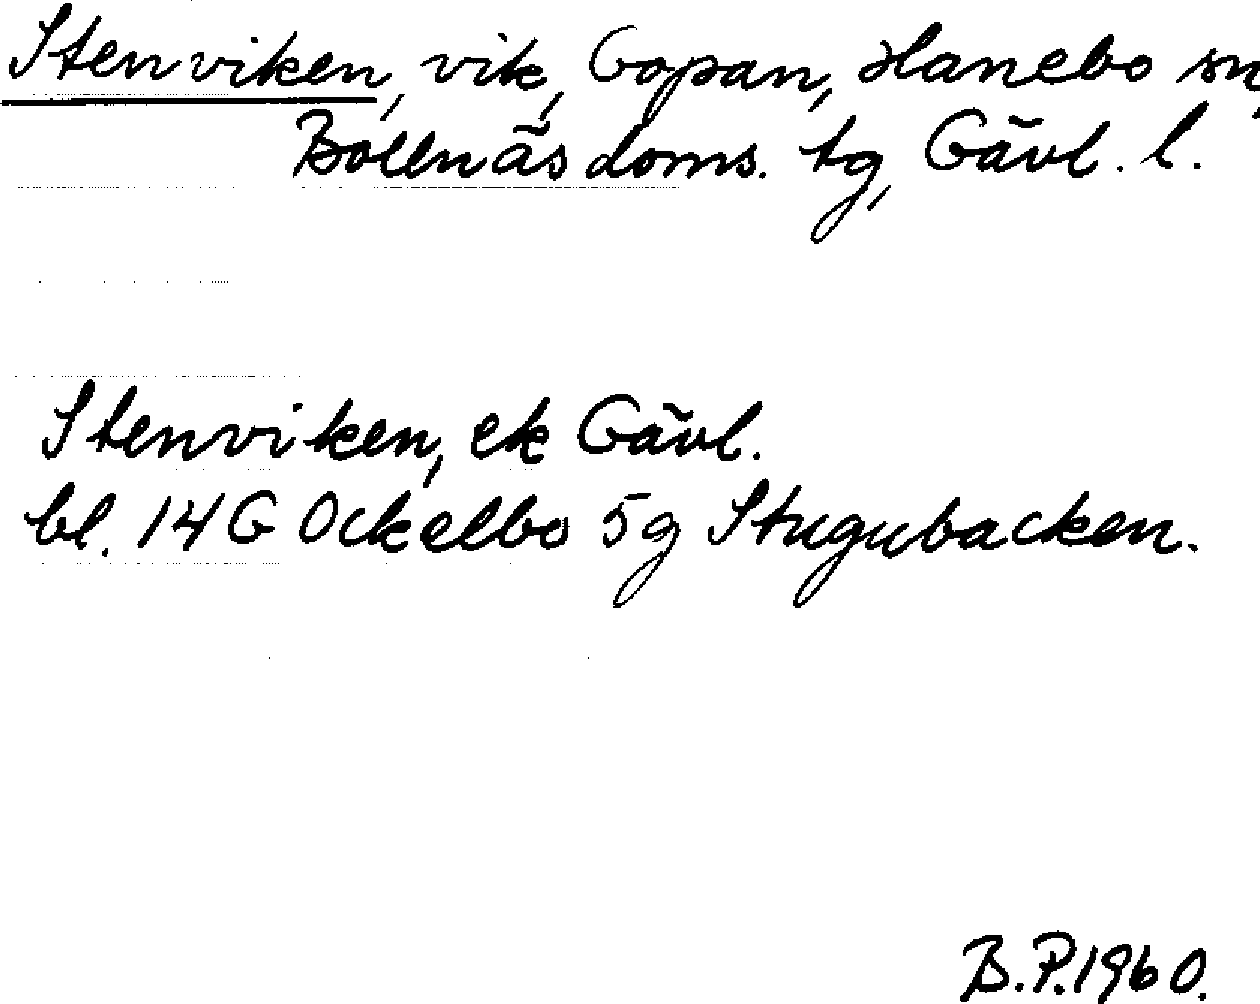 Stenviken, vik, Gopan, Hanebo sn,
Bollnäs doms. tg, Gävl. l.
Stenviken, ek Gävl.
bl. 14G Ockelbo 5g Stugubacken.
B.P. 1960.